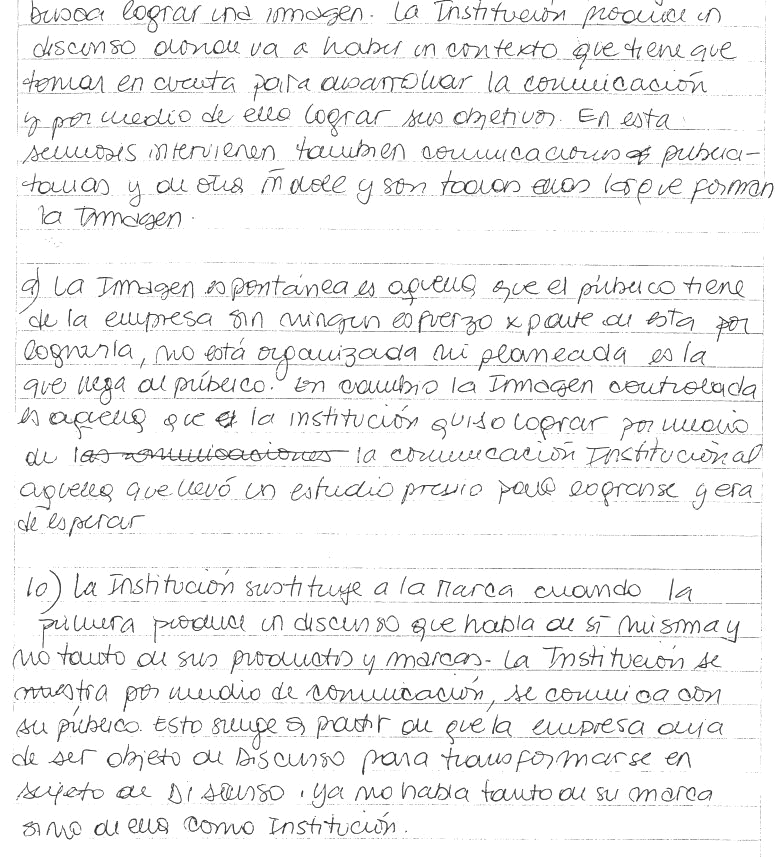 busca lograr una immagen. La Institución produce un
discurso donde va a haber un contexto que tiene que
tomar en cuenta para desarrollar la comunicación
y por medio de ello lograr sus objetivos. En esta
semiosis intervienen también comunicaciones publici-
tarias y de otra índole y son todas ellas las que forman
la Immagen.
9) La Immagen espontánea es aquella que el público tiene
de la empresa sin ningún esfuerzo x parte de esta por
lograrla, no está organizada ni planeada es la
que llega al público. En cambio la Immagen controlada
es aquella que la institución quiso lograr por medio
de las comunicaciones la comunicación Institucional
aquella que llevó un estudio previo para lograrse y era
de esperar
10) La Institución sustituye a la Marca cuando la
primera produce un discurso que habla de sí misma y
no tanto de sus productos y marcas. La Institución se
muestra por medio de comunicación, se comunica con
su público. Esto surge a partir de que la empresa deja
de ser objeto de Discurso para transformarse en
sujeto de Discurso. ya no habla tanto de su marca
sino de ella como Institución.